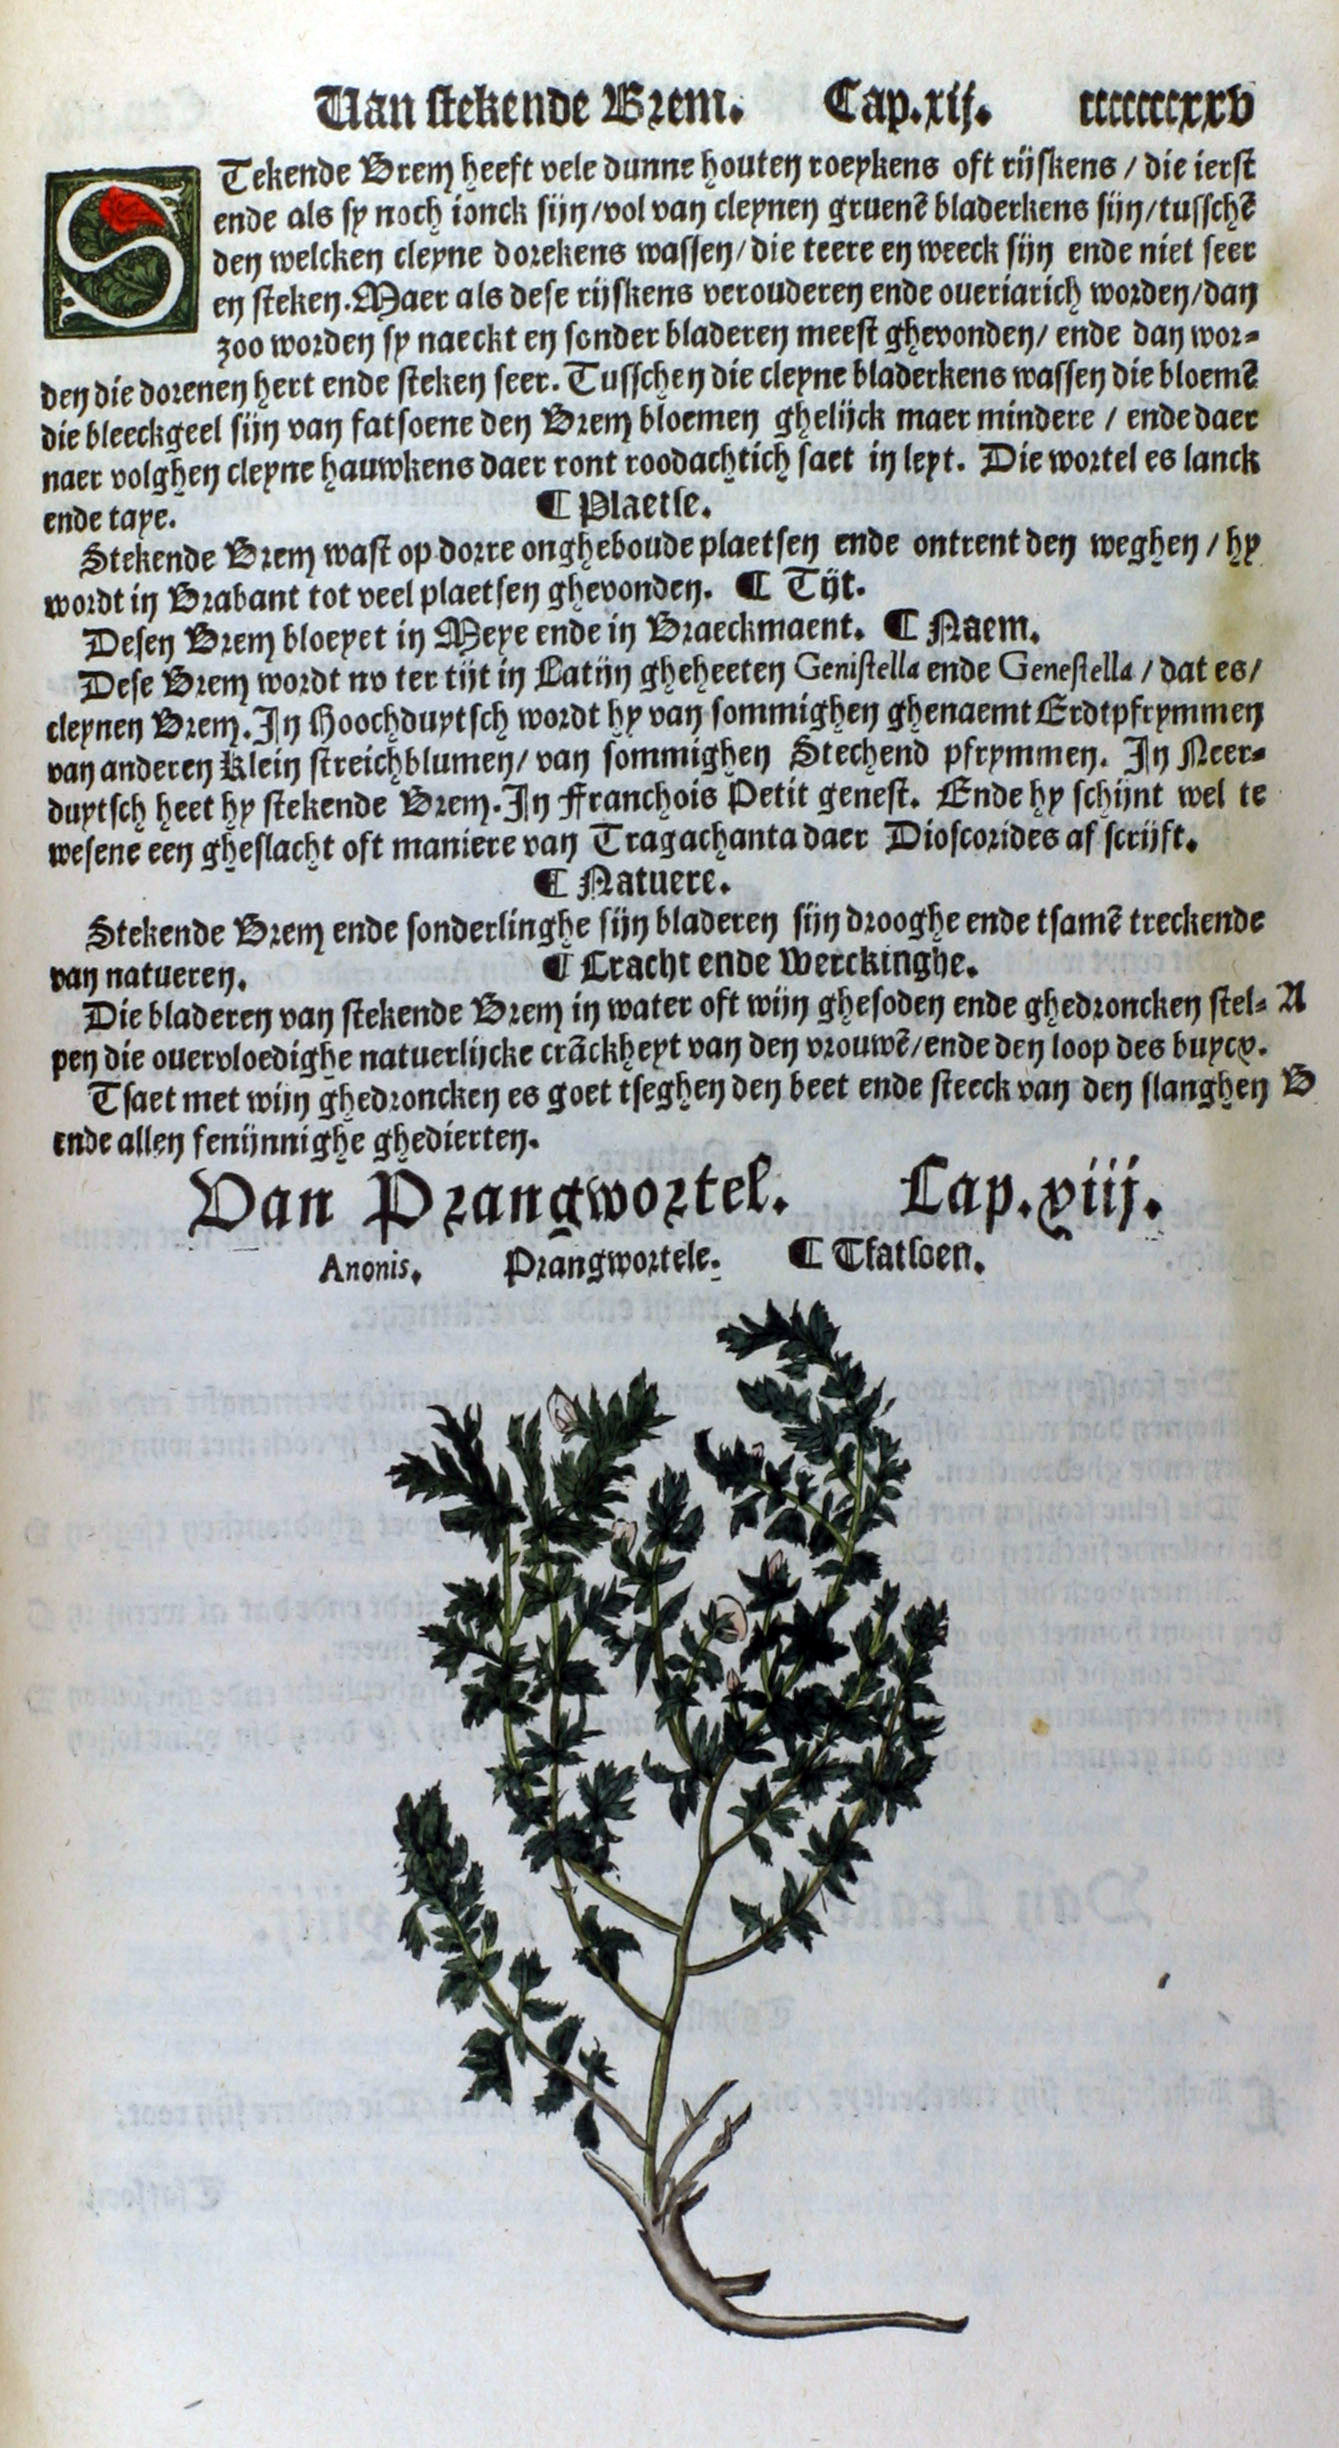 Van stekende Brem. Cap.xij. cccccccxxv
STekende Brem heeft vele dunne houten roeykens oft rijskens / die ierst
ende als sy noch ionck sijn/vol van cleynen gruenē bladerkens sijn/tusschē
den welcken cleyne dorekens wassen/die teere en weeck sijn ende niet seer
en steken.Maer als dese rijskens verouderen ende oueriarich worden/dan
zoo worden sy naeckt en sonder bladeren meest ghevonden/ ende dan wor-
den die dorenen hert ende steken seer. Tusschen die cleyne bladerkens wassen die bloemē
die bleeckgeel sijn van fatsoene den Brem bloemen ghelijck maer mindere / ende daer
naer volghen cleyne hauwkens daer ront roodachtich saet in leyt. Die wortel es lanck
ende taye. ¶ Plaetse.
Stekende Brem wast op dorre ongheboude plaetsen ende ontrent den weghen / hy
wordt in Brabant tot veel plaetsen ghevonden. ¶ Tijt.
Desen Brem bloeyet in Meye ende in Braeckmaent. ¶ Naem.
Dese Brem wordt nv ter tijt in Latijn gheheeten Genistella ende Genestella / dat es/
cleynen Brem. In Hoochduytsch wordt hy van sommighen ghenaemt Erdtpfrymmen
van anderen Klein streichblumen/ van sommighen Stechend pfrymmen. In Neer-
duytsch heet hy stekende Brem. In Franchois Petit genest. Ende hy schijnt wel te
wesene een gheslacht oft maniere van Tragachanta daer Dioscorides af scrijft.
¶ Natuere.
Stekende Brem ende sonderlinghe sijn bladeren sijn drooghe ende tsamē treckende
van natueren. ¶ Cracht ende Werckinghe.
Die bladeren van stekende Brem in water oft wijn ghesoden ende ghedroncken stel- A
pen die ouervloedighe natuerlijcke crāckheyt van den vrouwē/ende den loop des buycx.
Tsaet met wijn ghedroncken es goet tseghen den beet ende steeck van den slanghen B
ende allen fenijnnighe ghedierten.
Van Prangwortel. Cap.xiij.
Anonis. Prangwortele. ¶ Tfatsoen.